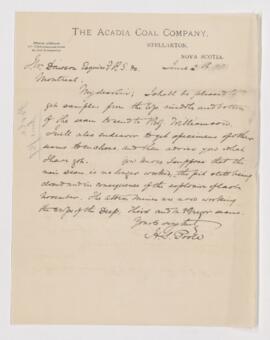 THE ACADIA COAL COMPANY,
STELLARTON,
NOVA SCOTIA.
Dawson Esquire F.R.S. &c
Montreal.
My dear Sir; I shall be pleased to
get samples from the top middle and bottom
of the seam to send to Prof. Williamson
I will also endeavor to get specimens of other
seams to enclose, and then advise you what
I have got. you more I suppose that the
main seam is no longer worked, the pit still being
closed and in consequence of the explosion of last
November. The Albion Mines are now working
the Deep, Third and McGregor seams.
Yours very truly
H.S. Poole